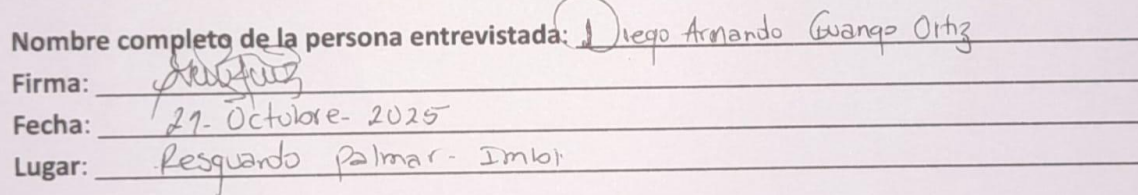 Nombre completo de la persona entrevistada: Diego Armando Guango Ortiz
Firma:
Fecha: 21- Octubre- 2025
Lugar: Resguardo Palmar- Imbi